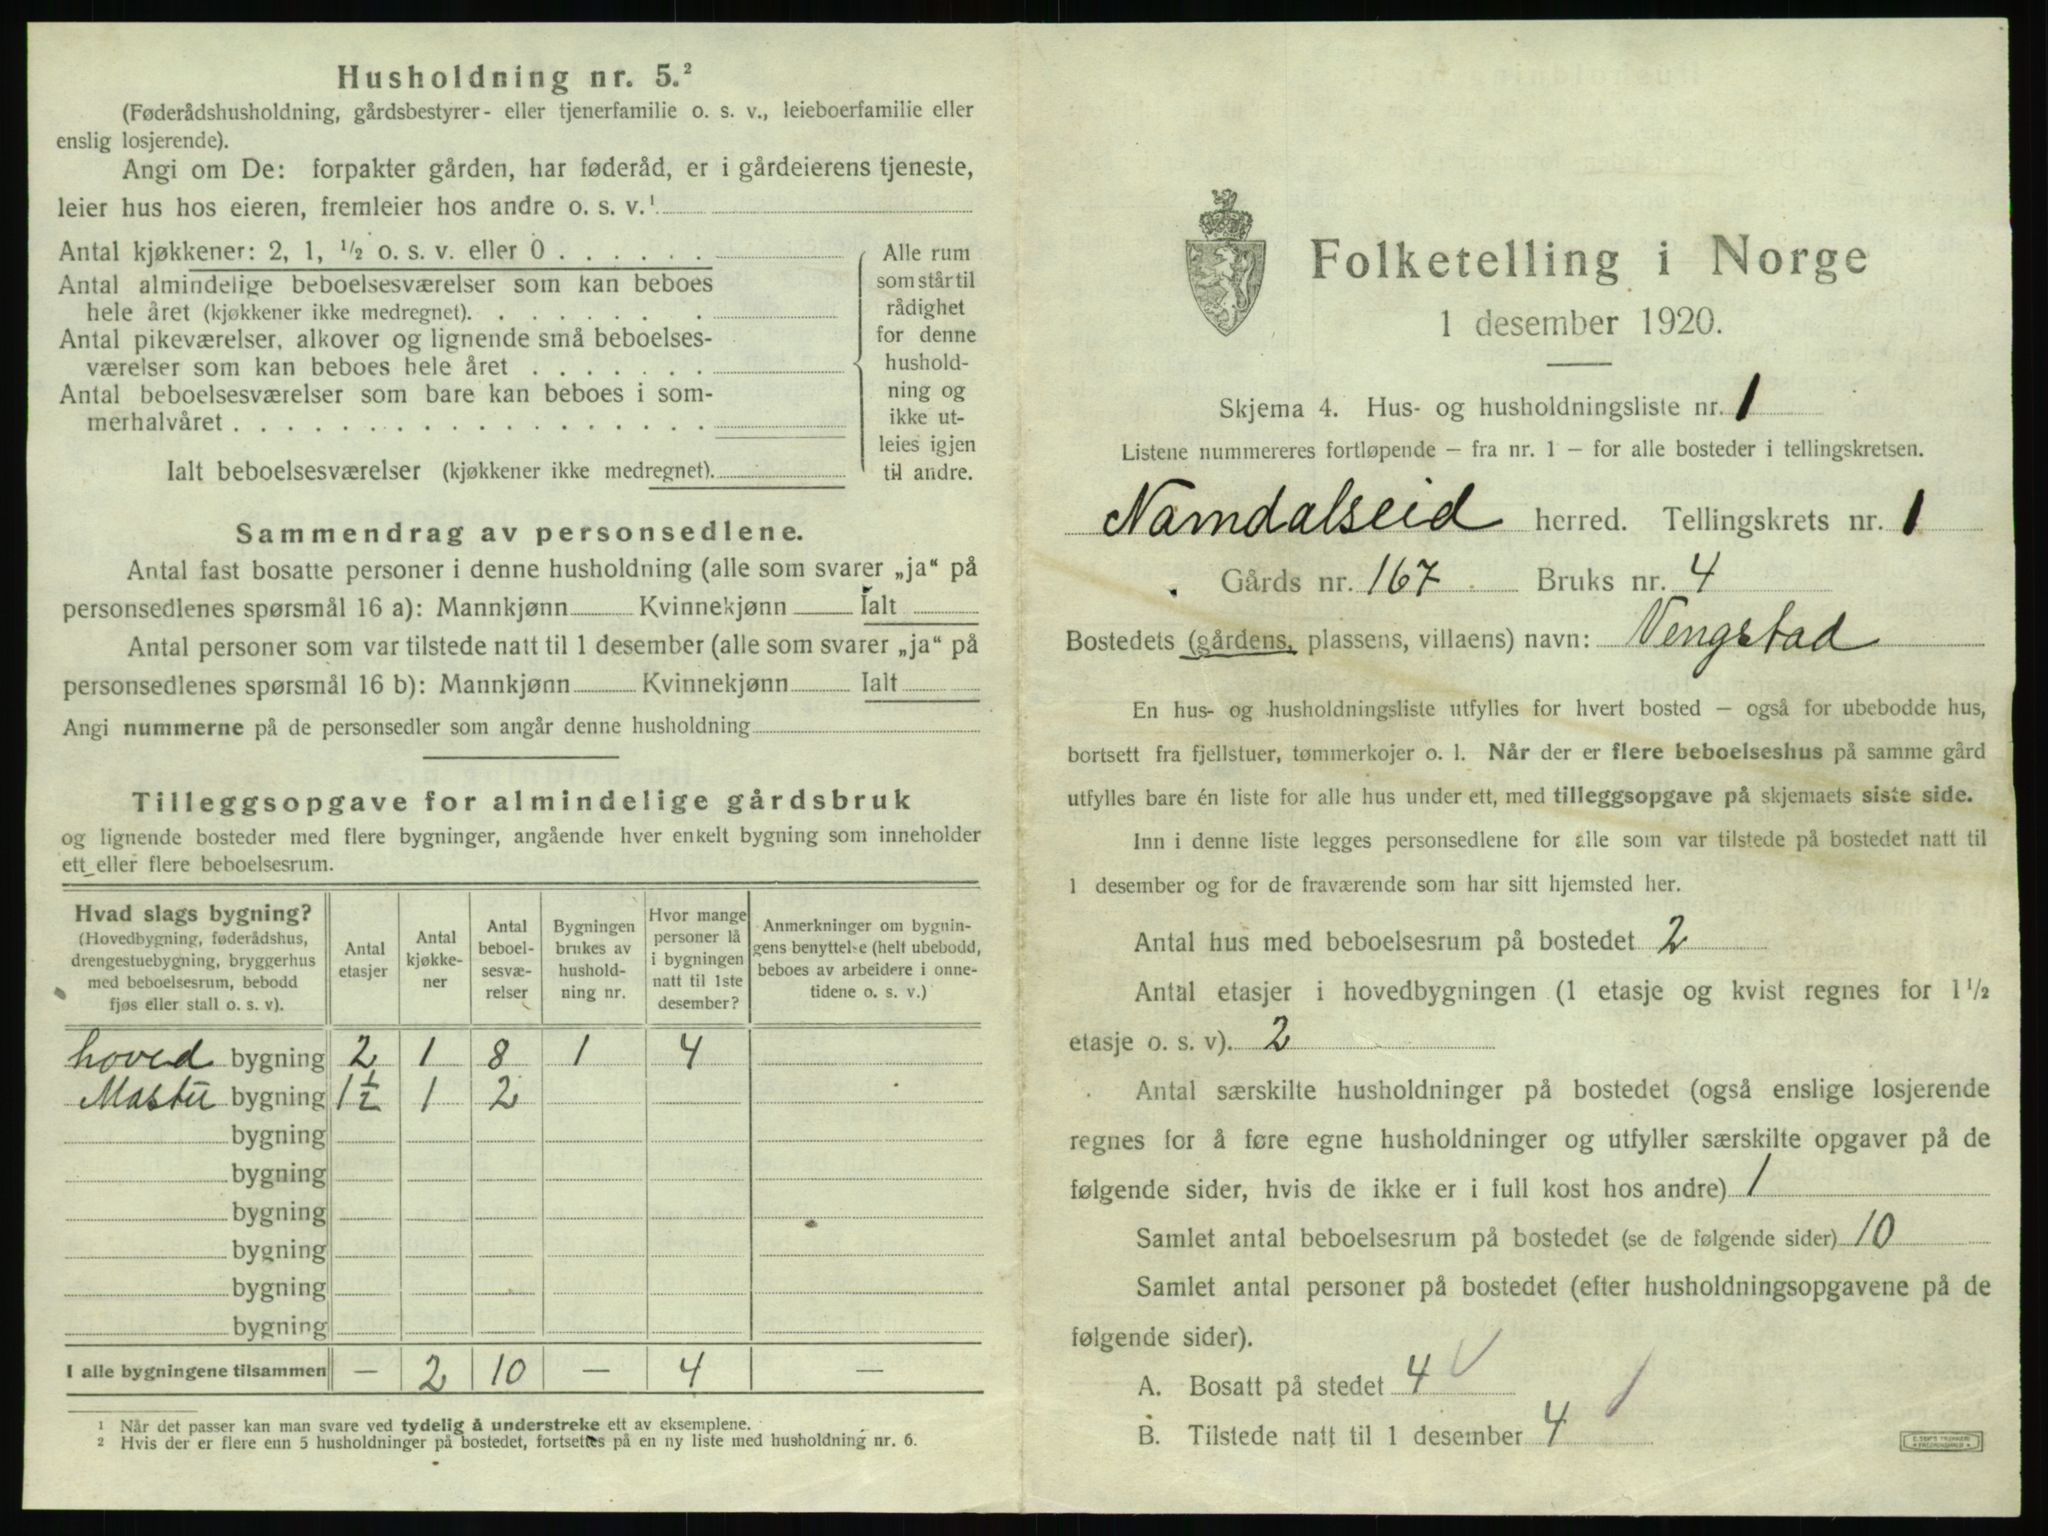 Husholdning nr. 5.²
(Føderådshusholdning, gårdsbestyrer- eller tjenerfamilie o. s. v., leieboerfamilie eller
enslig losjerende).
Angi om De: forpakter gården, har føderåd, er i gårdeierens tjeneste,
leier hus hos eieren, fremleier hos andre o. s. v.¹
Antal kjøkkener: 2, 1, ½ o. s. v. eller 0 . . . . . .
Antal almindelige beboelsesværelser som kan beboes
hele året (kjøkkener ikke medregnet). . . . . . . .
Antal pikeværelser, alkover og lignende små beboelses-
værelser som kan beboes hele året . . . . . . .
Antal beboelsesværelser som bare kan beboes i som-
merhalvåret . . . . . . . . . . . . . . . . . .
Ialt beboelsesværelser (kjøkkener ikke medregnet).
Alle rum
som står til
rådighet
for denne
hushold-
ning og
ikke ut-
leies igjen
til andre.
Sammendrag av personsedlene.
Antal fast bosatte personer i denne husholdning (alle som svarer „ja“ på
personsedlenes spørsmål 16 a): Mannkjønn Kvinnekjønn Ialt
Antal personer som var tilstede natt til 1 desember (alle som svarer „ja“ på
personsedlenes spørsmål 16 b): Mannkjønn Kvinnekjønn Ialt
Angi nummerne på de personsedler som angår denne husholdning
Tilleggsopgave for almindelige gårdsbruk
og lignende bosteder med flere bygninger, angående hver enkelt bygning som inneholder
ett eller flere beboelsesrum.
Hvad slags bygning?
(Hovedbygning, føderådshus,
drengestuebygning, bryggerhus
med beboelsesrum, bebodd
fjøs eller stall o. s. v).
Antal
etasjer
Antal
kjøkke-
ner
Antal
beboel-
sesvæ-
relser
Bygningen
brukes av
hushold-
ning nr.
Hvor mange
personer lå
i bygningen
natt til 1ste
desember?
Anmerkninger om bygnin-
gens benyttelse (helt ubebodd,
beboes av arbeidere i onne-
tidene o. s. v.)
hoved bygning 2 1 8 1 4
Mastu bygning 1½ 1 2
bygning
bygning
bygning
bygning
bygning
bygning
I alle bygningene tilsammen — 2 10 — 4 —
¹ Når det passer kan man svare ved tydelig å understreke ett av eksemplene.
² Hvis der er flere enn 5 husholdninger på bostedet, fortsettes på en ny liste med husholdning nr. 6.
Folketelling i Norge
1 desember 1920.
Skjema 4. Hus- og husholdningsliste nr. 1
Listene nummereres fortløpende – fra nr. 1 – for alle bosteder i tellingskretsen.
Namdalseid herred. Tellingskrets nr. 1
Gårds nr. 167 Bruks nr. 4
Bostedets (gårdens, plassens, villaens) navn: Vengstad
En hus- og husholdningsliste utfylles for hvert bosted – også for ubebodde hus,
bortsett fra fjellstuer, tømmerkojer o. l. Når der er flere beboelseshus på samme gård
utfylles bare én liste for alle hus under ett, med tilleggsopgave på skjemaets siste side.
Inn i denne liste legges personsedlene for alle som var tilstede på bostedet natt til
1 desember og for de fraværende som har sitt hjemsted her.
Antal hus med beboelsesrum på bostedet 2
Antal etasjer i hovedbygningen (1 etasje og kvist regnes for 1½
etasje o. s. v). 2
Antal særskilte husholdninger på bostedet (også enslige losjerende
regnes for å føre egne husholdninger og utfyller særskilte opgaver på de
følgende sider, hvis de ikke er i full kost hos andre) 1
Samlet antal beboelsesrum på bostedet (se de følgende sider) 10
Samlet antal personer på bostedet (efter husholdningsopgavene på de
følgende sider).
A. Bosatt på stedet 4
B. Tilstede natt til 1 desember 4